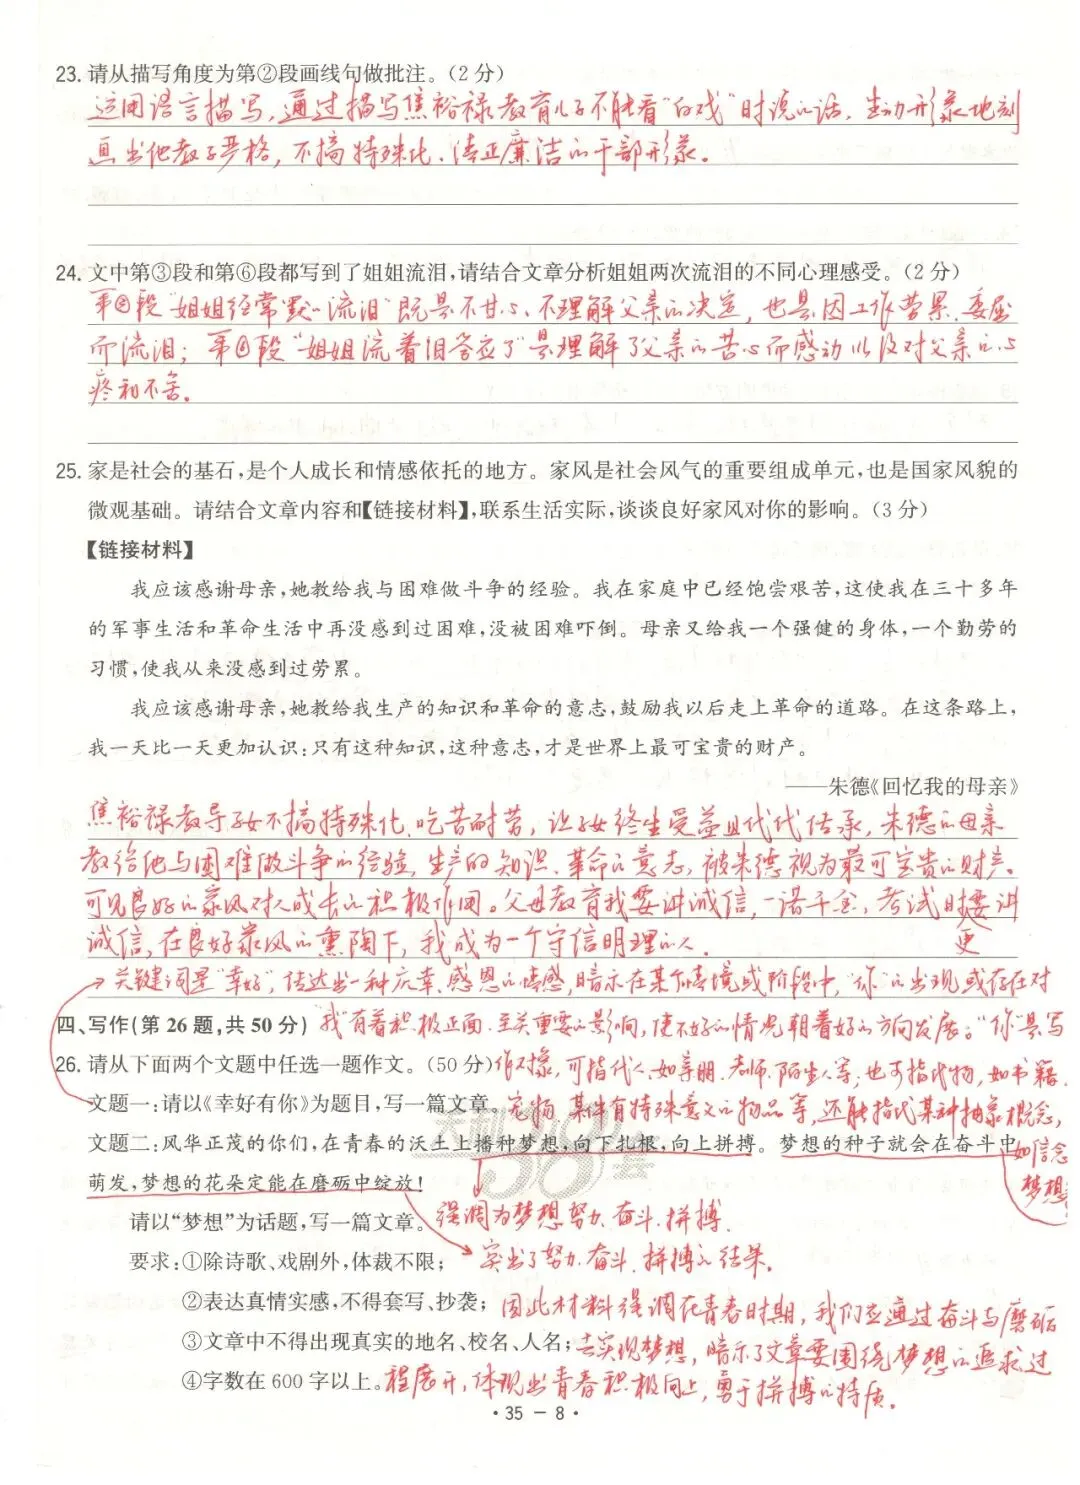 23. 请从描写角度为第②段画线句做批注。(2分)
运用语言描写,通过描写焦裕禄教育儿子不能看“白戏”时说的话,生动形象地刻
画出他教子严格,不搞特殊化、清正廉洁的干部形象。
24. 文中第③段和第⑥段都写到了姐姐流泪,请结合文章分析姐姐两次流泪的不同心理感受。(2分)
第③段“姐姐经常默默流泪”既是不甘心、不理解父亲的决定,也是因工作劳累、委屈
而流泪;第⑥段“姐姐流着泪答应了”是理解了父亲的苦心而感动以及对父亲的心
疼和不舍。
25. 家是社会的基石,是个人成长和情感依托的地方。家风是社会风气的重要组成单元,也是国家风貌的
微观基础。请结合文章内容和【链接材料】,联系生活实际,谈谈良好家风对你的影响。(3分)
【链接材料】
我应该感谢母亲,她教给我与困难做斗争的经验。我在家庭中已经饱尝艰苦,这使我在三十多年
的军事生活和革命生活中再没感到过困难,没被困难吓倒。母亲又给我一个强健的身体,一个勤劳的
习惯,使我从来没感到过劳累。
我应该感谢母亲,她教给我生产的知识和革命的意志,鼓励我以后走上革命的道路。在这条路上,
我一天比一天更加认识:只有这种知识,这种意志,才是世界上最可宝贵的财产。
——朱德《回忆我的母亲》
焦裕禄教导子女不搞特殊化、吃苦耐劳,让子女终生受益且代代传承,朱德的母亲
教给他与困难做斗争的经验,生产的知识、革命的意志,被朱德视为最可宝贵的财产。
可见良好的家风对人成长的积极作用。父母教育我要讲诚信,一诺千金,考试时更要讲
诚信,在良好家风的熏陶下,我成为一个守信明理的人。
→关键词是“幸好”,传达出一种庆幸、感恩的情感,暗示在某个情境或阶段中,“你”的出现或存在对
四、写作(第26题,共50分) “我”有着积极正面、至关重要的影响,使不好的情况朝着好的方向发展。“你”是写
26. 请从下面两个文题中任选一题作文。(50分) 作对象,可指代人,如亲朋、老师、陌生人等;也可指代物,如书籍、
文题一:请以《幸好有你》为题目,写一篇文章。 宠物、某件有特殊意义的物品等,还能指代某种抽象概念,
如信念
文题二:风华正茂的你们,在青春的沃土上播种梦想,向下扎根,向上拼搏。梦想的种子就会在奋斗中
梦想
萌发,梦想的花朵定能在磨砺中绽放!
请以“梦想”为话题,写一篇文章。 强调为梦想努力、奋斗、拼搏。
要求:①除诗歌、戏剧外,体裁不限; 突出了努力、奋斗、拼搏的结果。
②表达真情实感,不得套写、抄袭; 因此材料强调在青春时期,我们应通过奋斗与磨砺
③文章中不得出现真实的地名、校名、人名; 去实现梦想,暗示了文章要围绕梦想的追求过
④字数在600字以上。 程展开,体现出青春积极向上,勇于拼搏的特质。
·35－8·